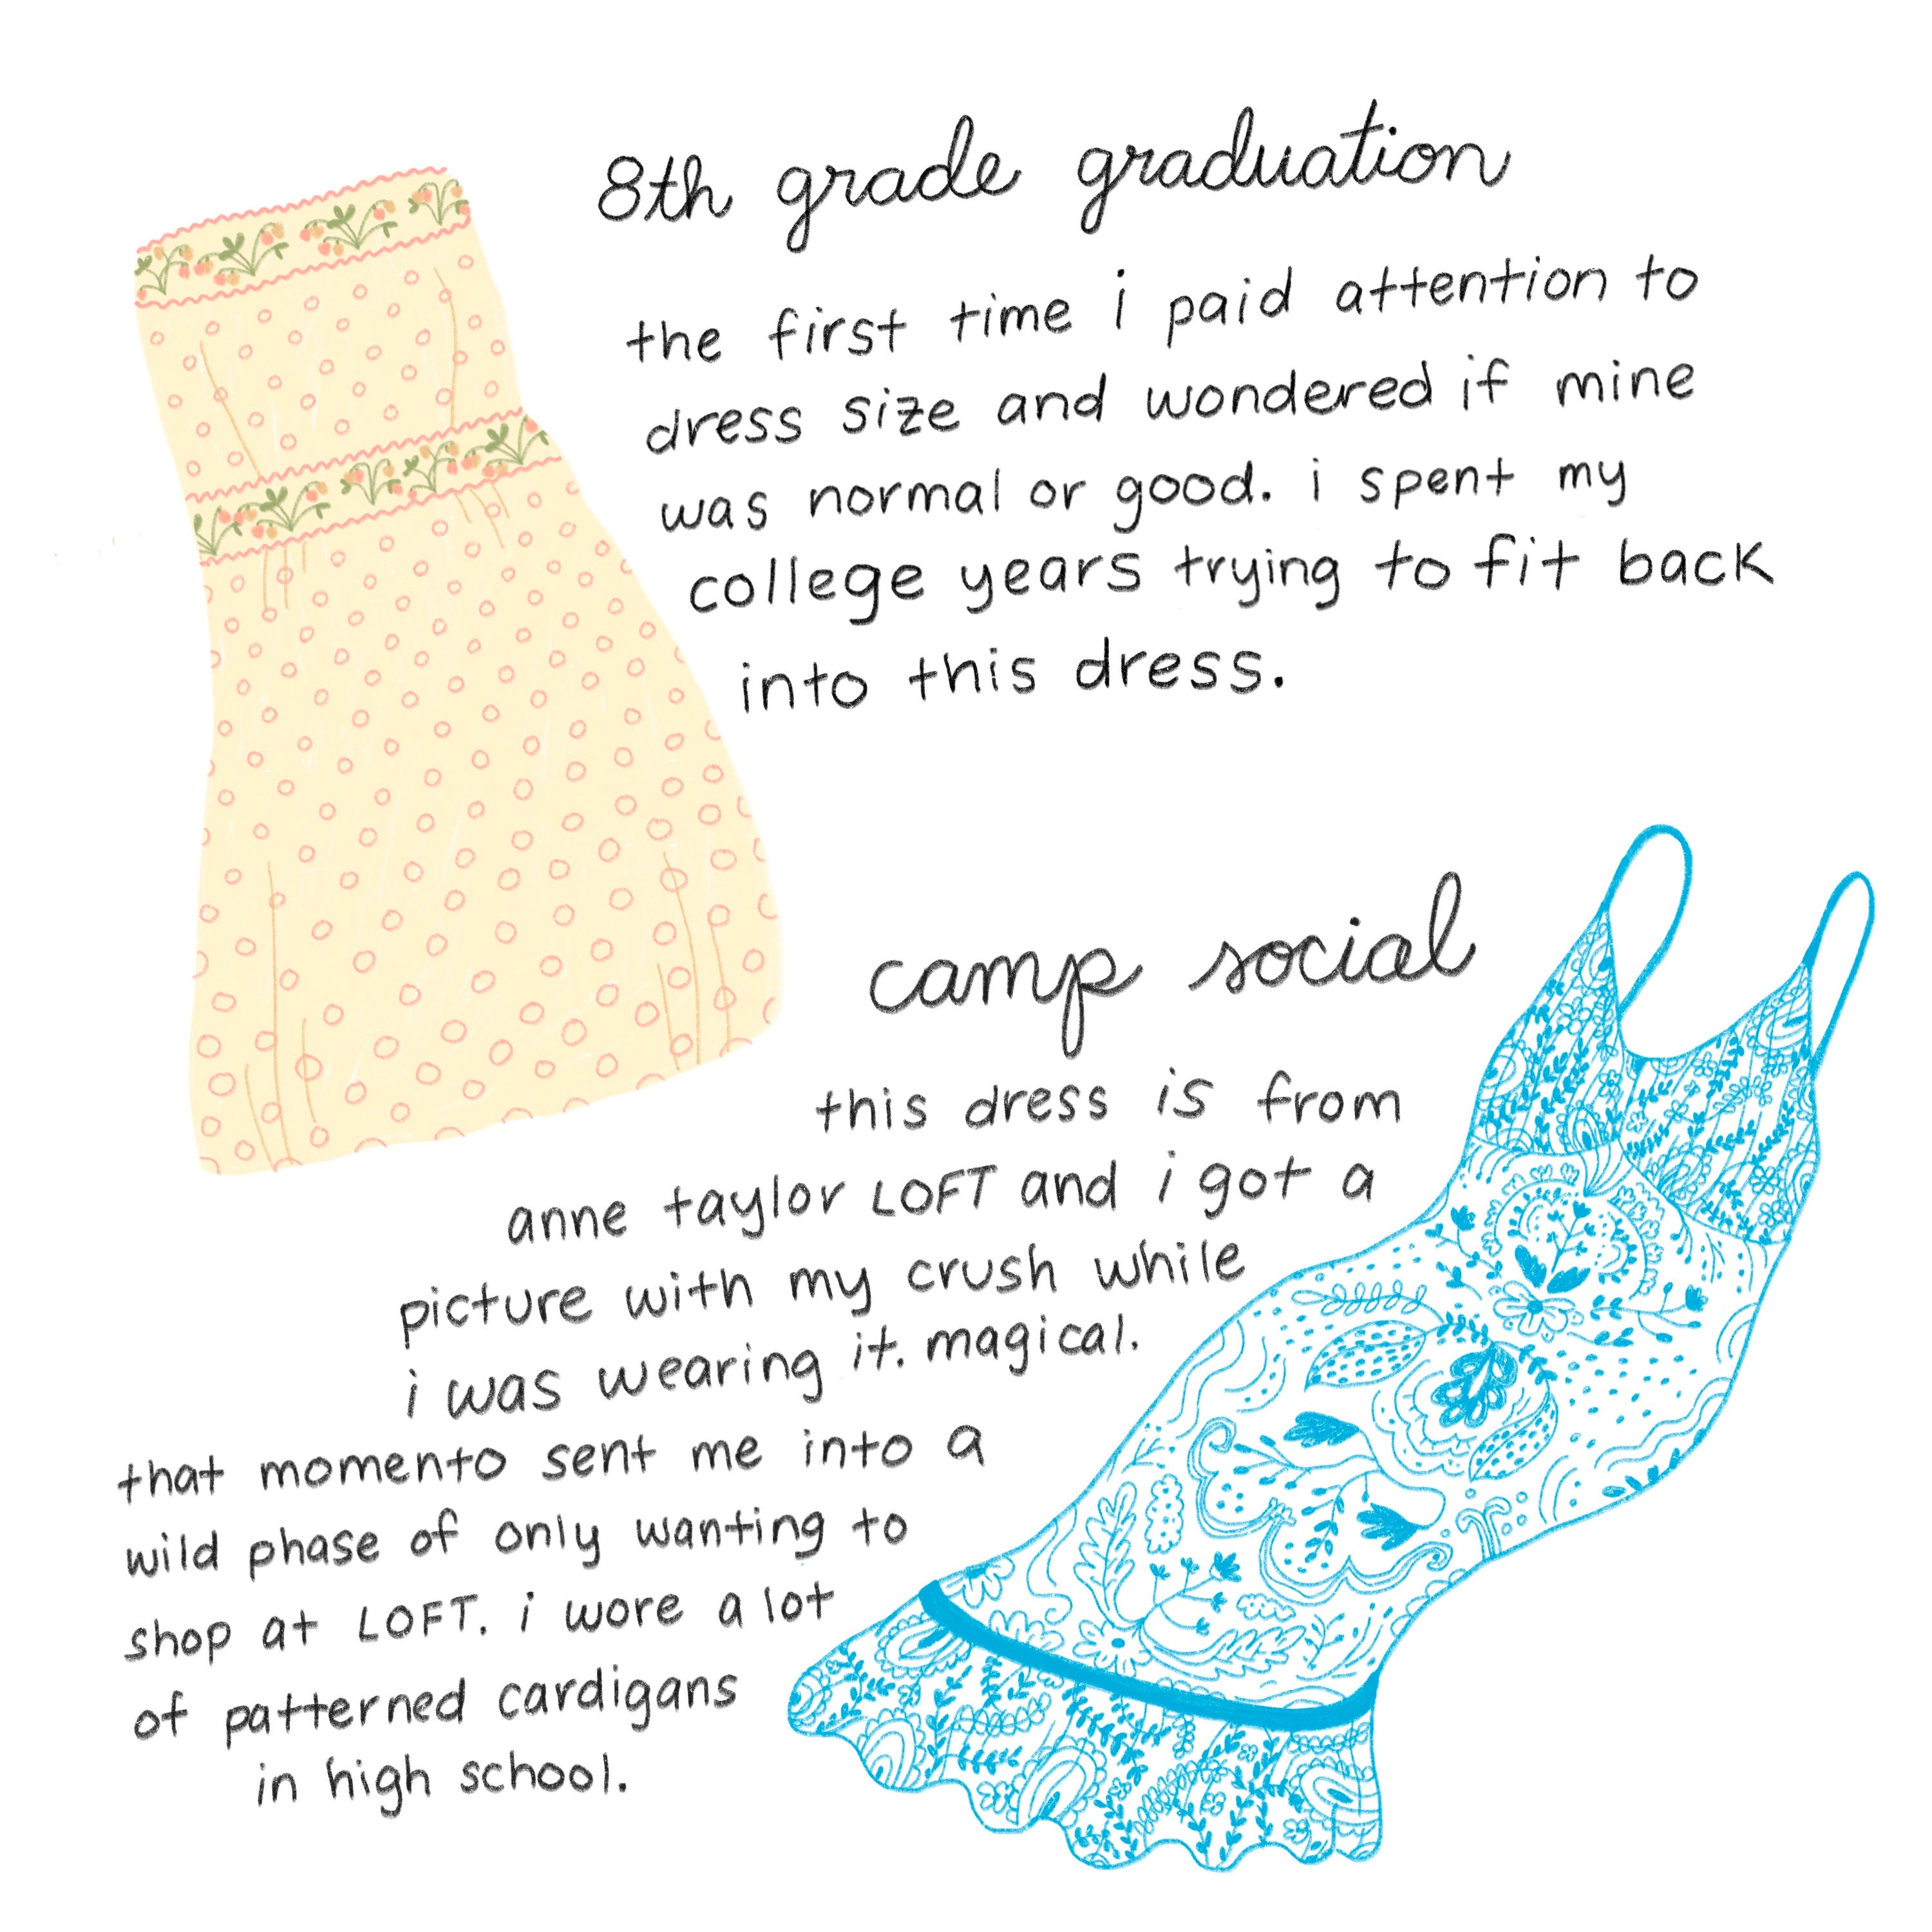 8th grade graduation
the first time i paid attention to
dress size and wondered if mine
was normal or good. i spent my
college years trying to fit back
into this dress.
camp social
this dress is from
anne taylor LOFT and i got a
picture with my crush while
i was wearing it. magical.
that momento sent me into a
wild phase of only wanting to
shop at LOFT. i wore a lot
of patterned cardigans
in high school.